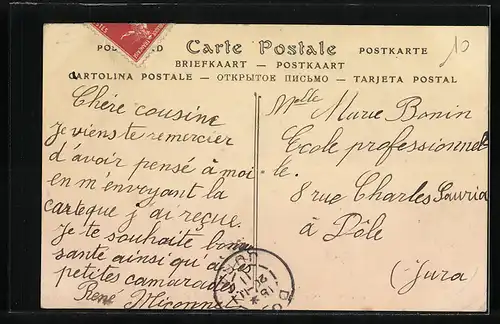 Carte Postale
POSTKARTE
BRIEFKAART — POSTKAART
CARTOLINA POSTALE — ОТКРЫТОЕ ПИСЬМО — TARJETA POSTAL
10
Chére cousine
Je viens te remercier
d'avoir pensé à moi
en m'envoyant la
carte que j'ai reçue.
Je te souhaite bonne
santé ainsi qu'à
petites camarades
René
Melle Marie Bonin
Ecole professionnel
le.
8 rue Charles Sauria
à Dôle
(Jura)